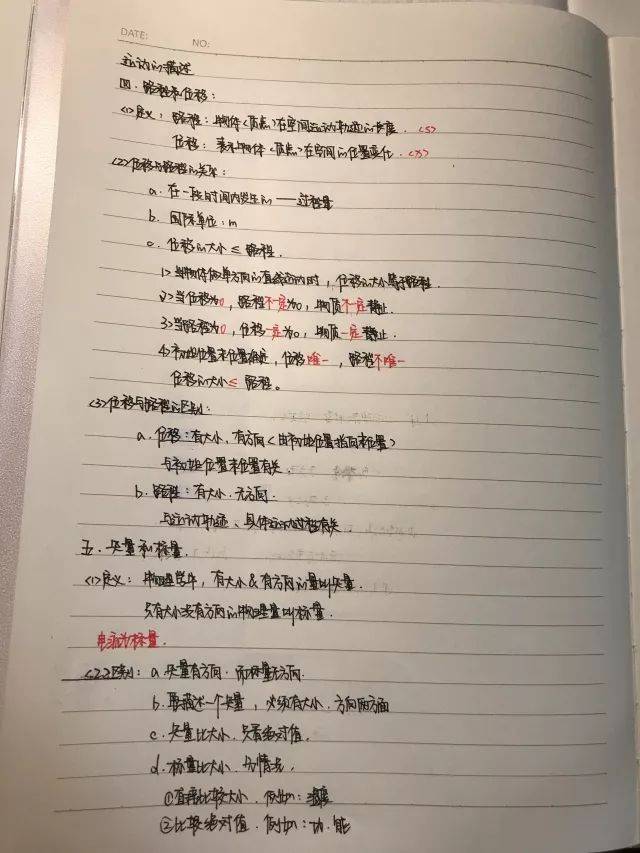 DATE: NO:
运动的描述
四. 路程和位移:
<1>定义: 路程: 物体<质点>在空间运动轨迹的长度. <S>
位移: 表示物体<质点>在空间的位置变化. <X>
<2>位移与路程的关系:
a. 在一段时间内发生的——过程量
b. 国际单位: m
c. 位移的大小 ≤ 路程.
1> 当物体做单方向的直线运动时, 位移的大小等于路程.
2> 当位移为0, 路程不一定为0, 物质不一定静止.
3> 当路程为0, 位移一定为0, 物质一定静止.
4> 初始位置末位置确定, 位移唯一, 路程不唯一
位移的大小 ≤ 路程。
<3>位移与路程的区别:
a. 位移: 有大小, 有方向<由初始位置指向末位置>
与初始位置末位置有关.
b. 路程: 有大小. 无方向.
与运动轨迹、具体运动过程有关.
五. 矢量和标量.
<1>定义: 物理学中, 有大小&有方向的量叫矢量.
只有大小没有方向的物理量叫标量.
电流为标量.
<2>区别: a. 矢量有方向. 而标量无方向.
b. 要描述一个矢量, 必须有大小. 方向两方面
c. 矢量比大小, 只看绝对值.
d. 标量比大小, 分情况.
①直接比较大小. 例如: 温度
②比较绝对值. 例如: 功. 能